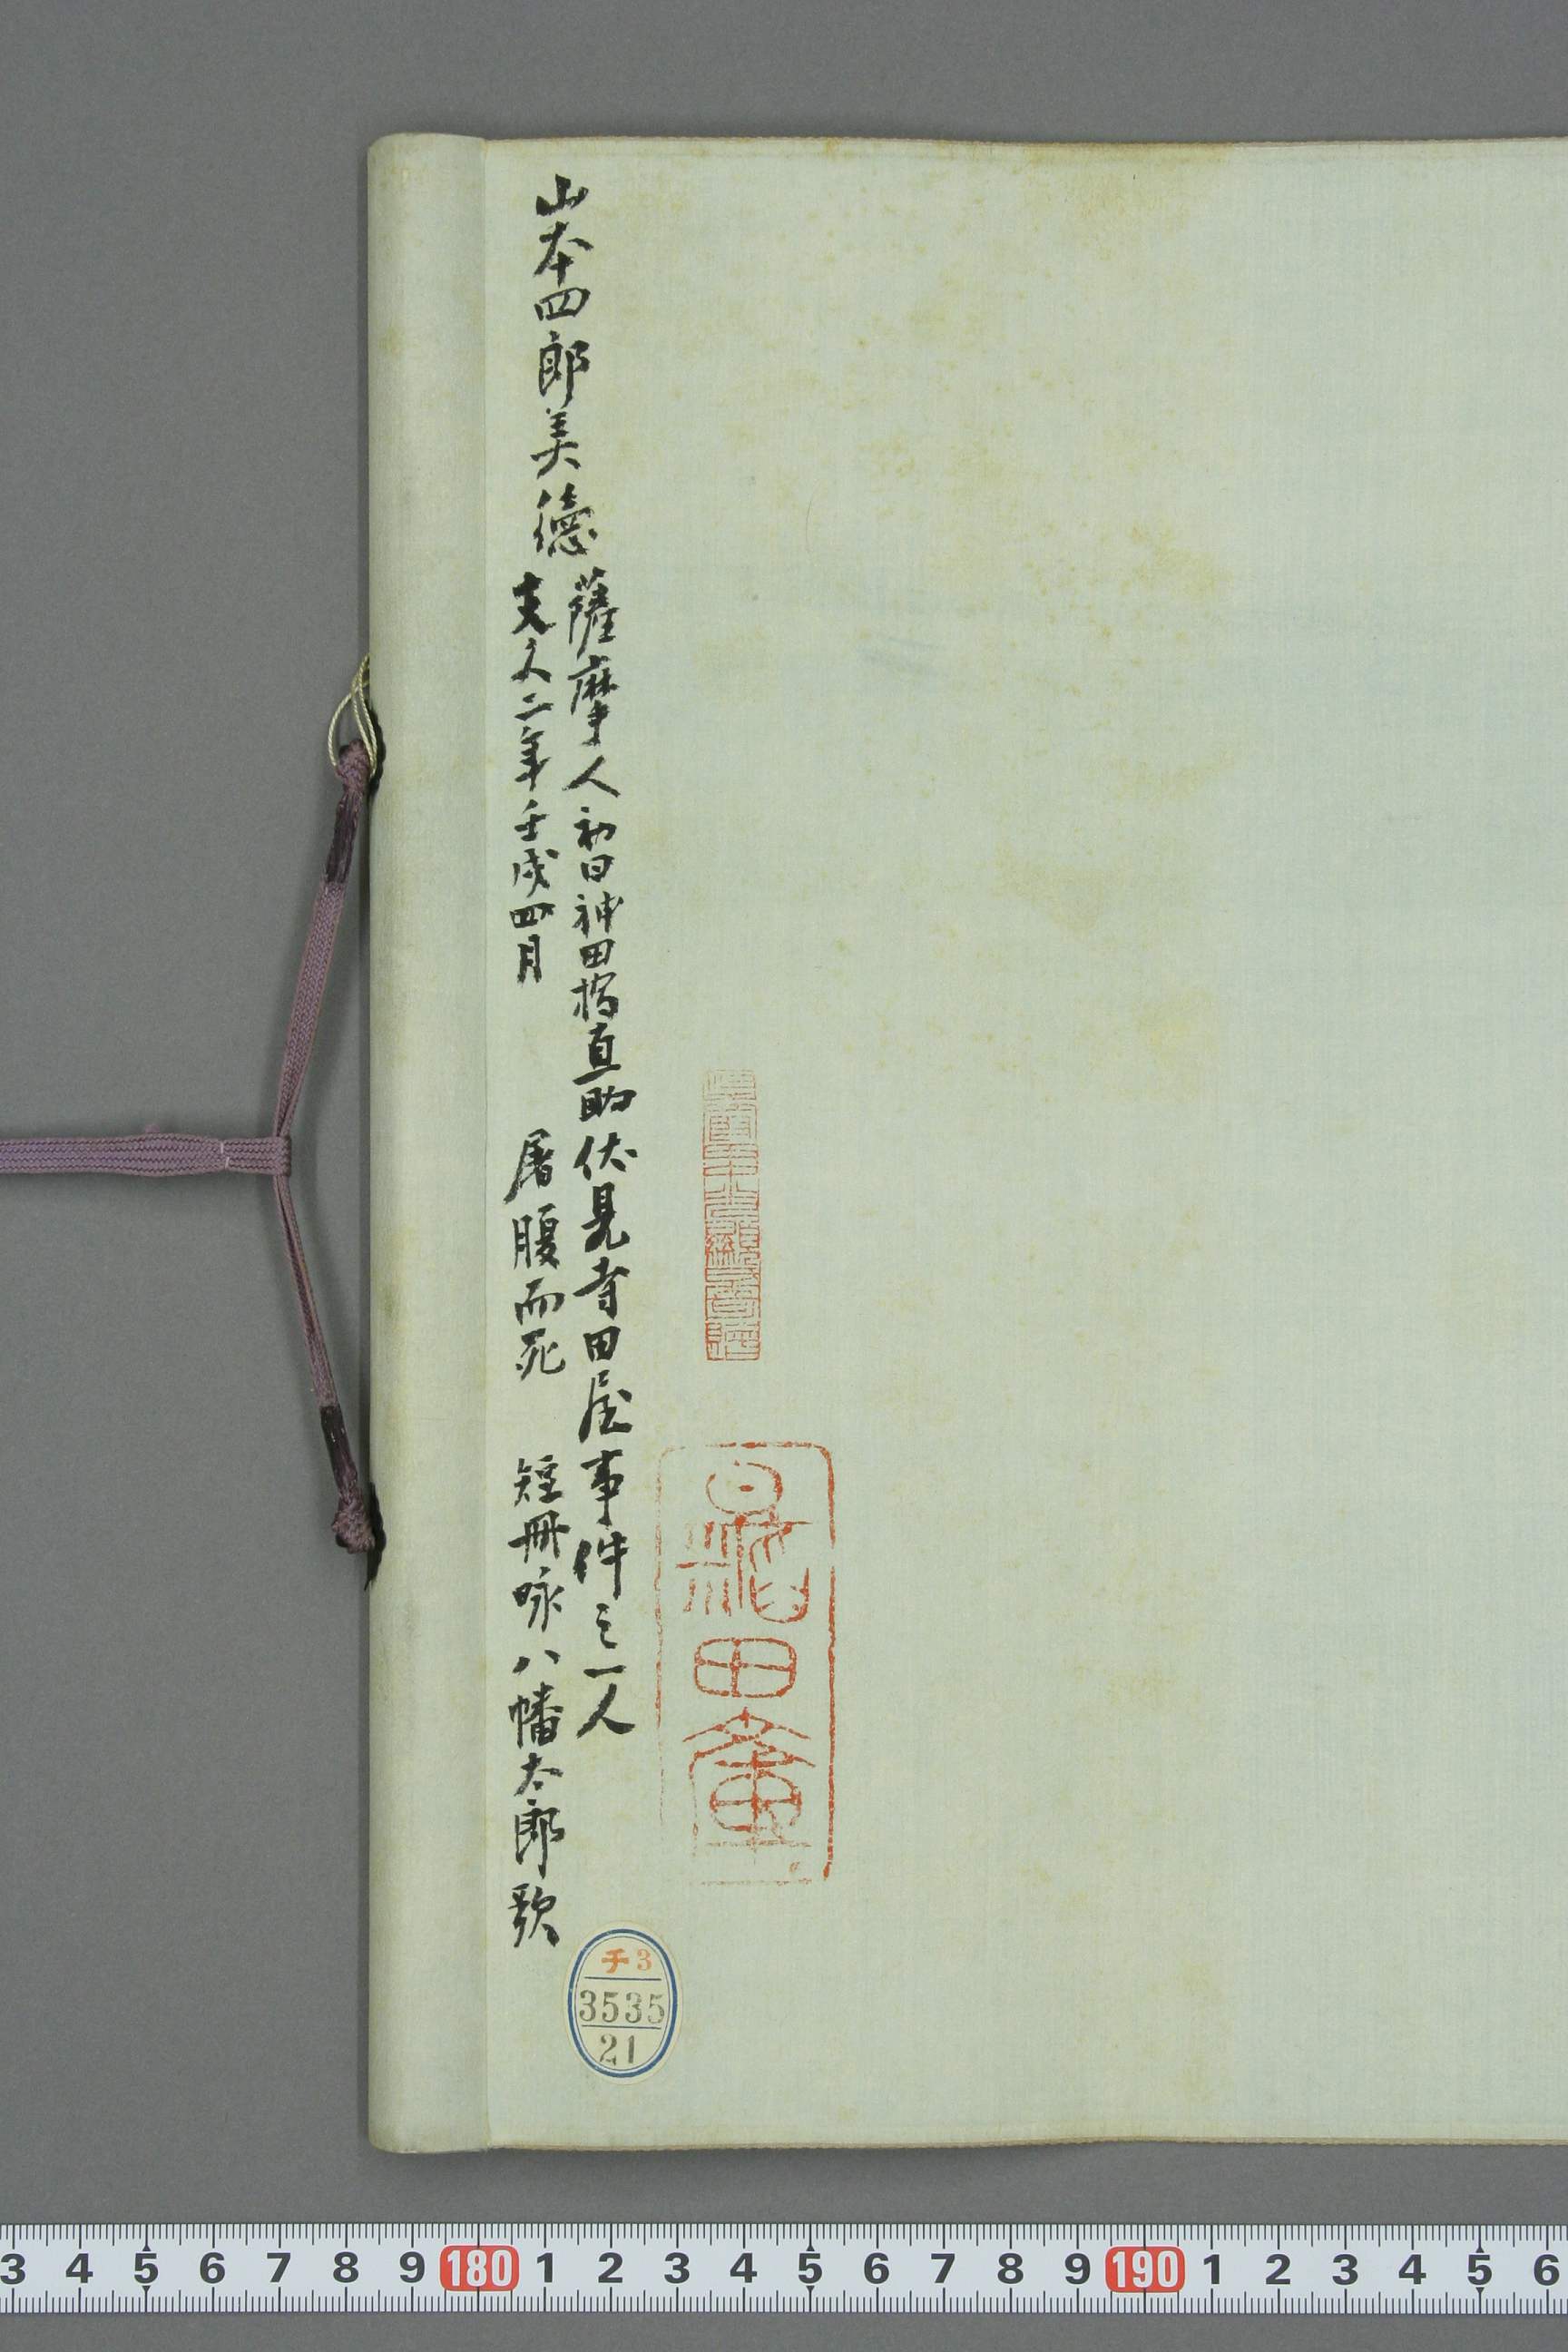 山本四郎美徳
薩摩人初曰神田橋直助伏見寺田屋事件之一人
文久二年壬戌四月 屠腹而死 短冊咏八幡太郎歌
チ3
3535
21
3 4 5 6 7 8 9 180 1 2 3 4 5 6 7 8 9 190 1 2 3 4 5 6